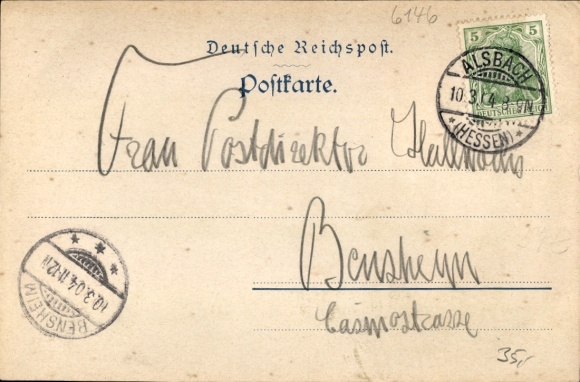 6146
Deutsche Reichspost.
Postkarte.
5 5
DEUTSCHES
ALSBACH
10.3.04 8-9N
*(HESSEN)*
Frau Postdirektor
Bensheim
BENSHEIM
10.3.04.11-12N
***
35,-